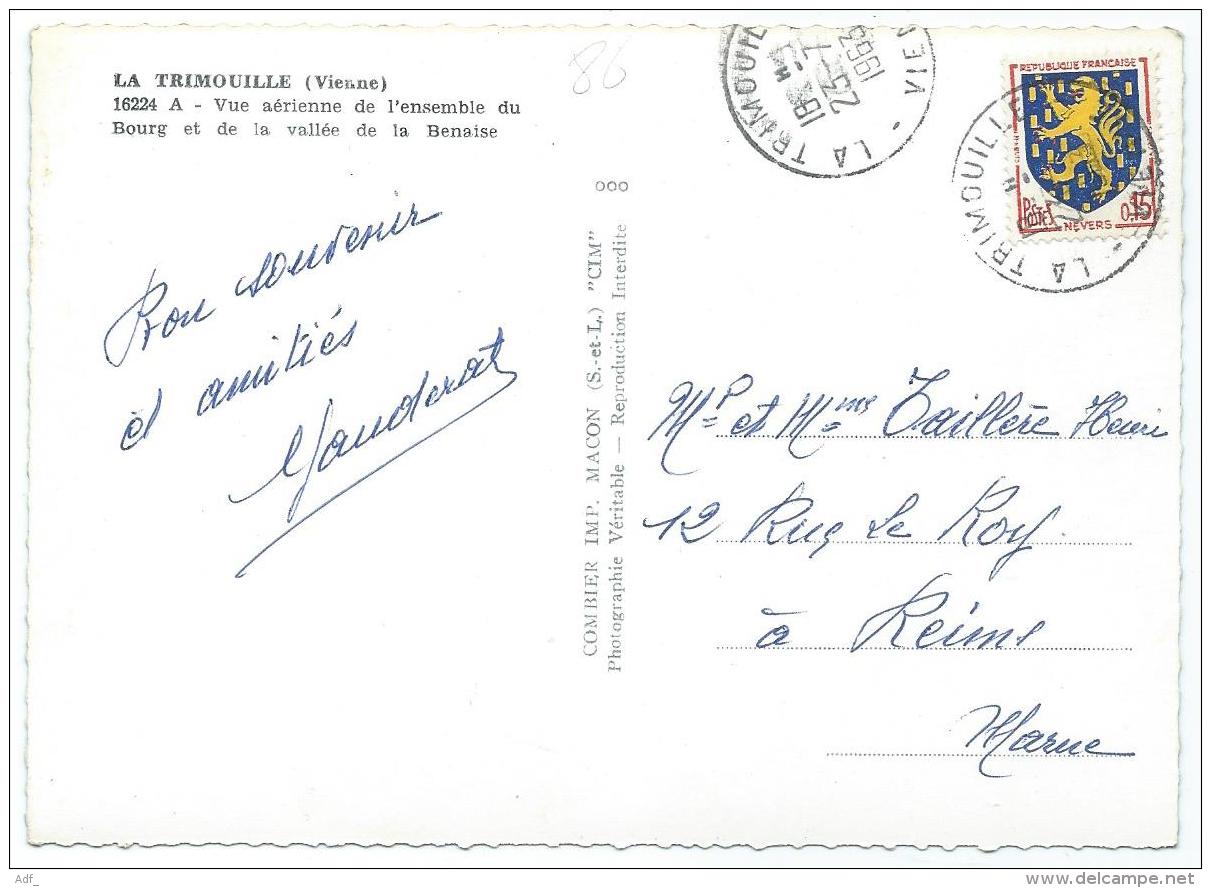 LA TRIMOUILLE (Vienne)
16224 A - Vue aérienne de l'ensemble du
Bourg et de la vallée de la Benaise
86
Bon souvenir
et amitiés
000
COMBIER IMP. MACON (S.-et-L.) "CIM"
Photographie Véritable — Reproduction Interdite
LA TRIMOUIL
VIEN
18 H
23-7
1963
REPUBLIQUE FRANÇAISE
POSTES
0,15
NEVERS
LA TRIMOUILLE
Mr et Mme Taillère Henri
12 Rue Le Roy
à Reims
Marne
Adf_
www.delcampe.net